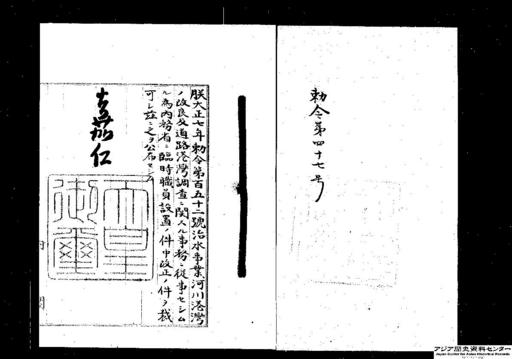 勅令第四十七号
朕大正七年勅令第百五十二號治水事業河川港灣
ノ改良及道路港灣調査ニ関スル事務ニ從事セシム
ル為内務省ニ臨時職員設置ノ件中改正ノ件ヲ裁
可シ茲ニ之ヲ公布セシム
嘉仁
天皇
御璽
内
閣
アジア歴史資料センター
Japan Center for Asian Historical Records